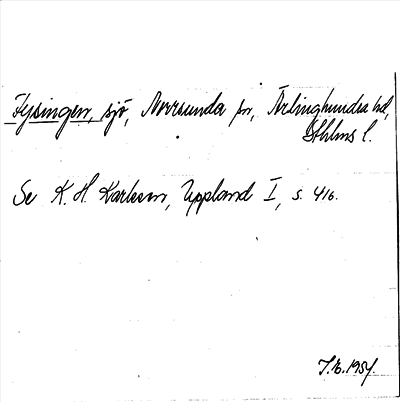 Fysingen, sjö, Norrsunda sn, Ärlinghundra hd,
Sthlms l.
Se K. H. Karlsson, Uppland I, s. 416.
1954.